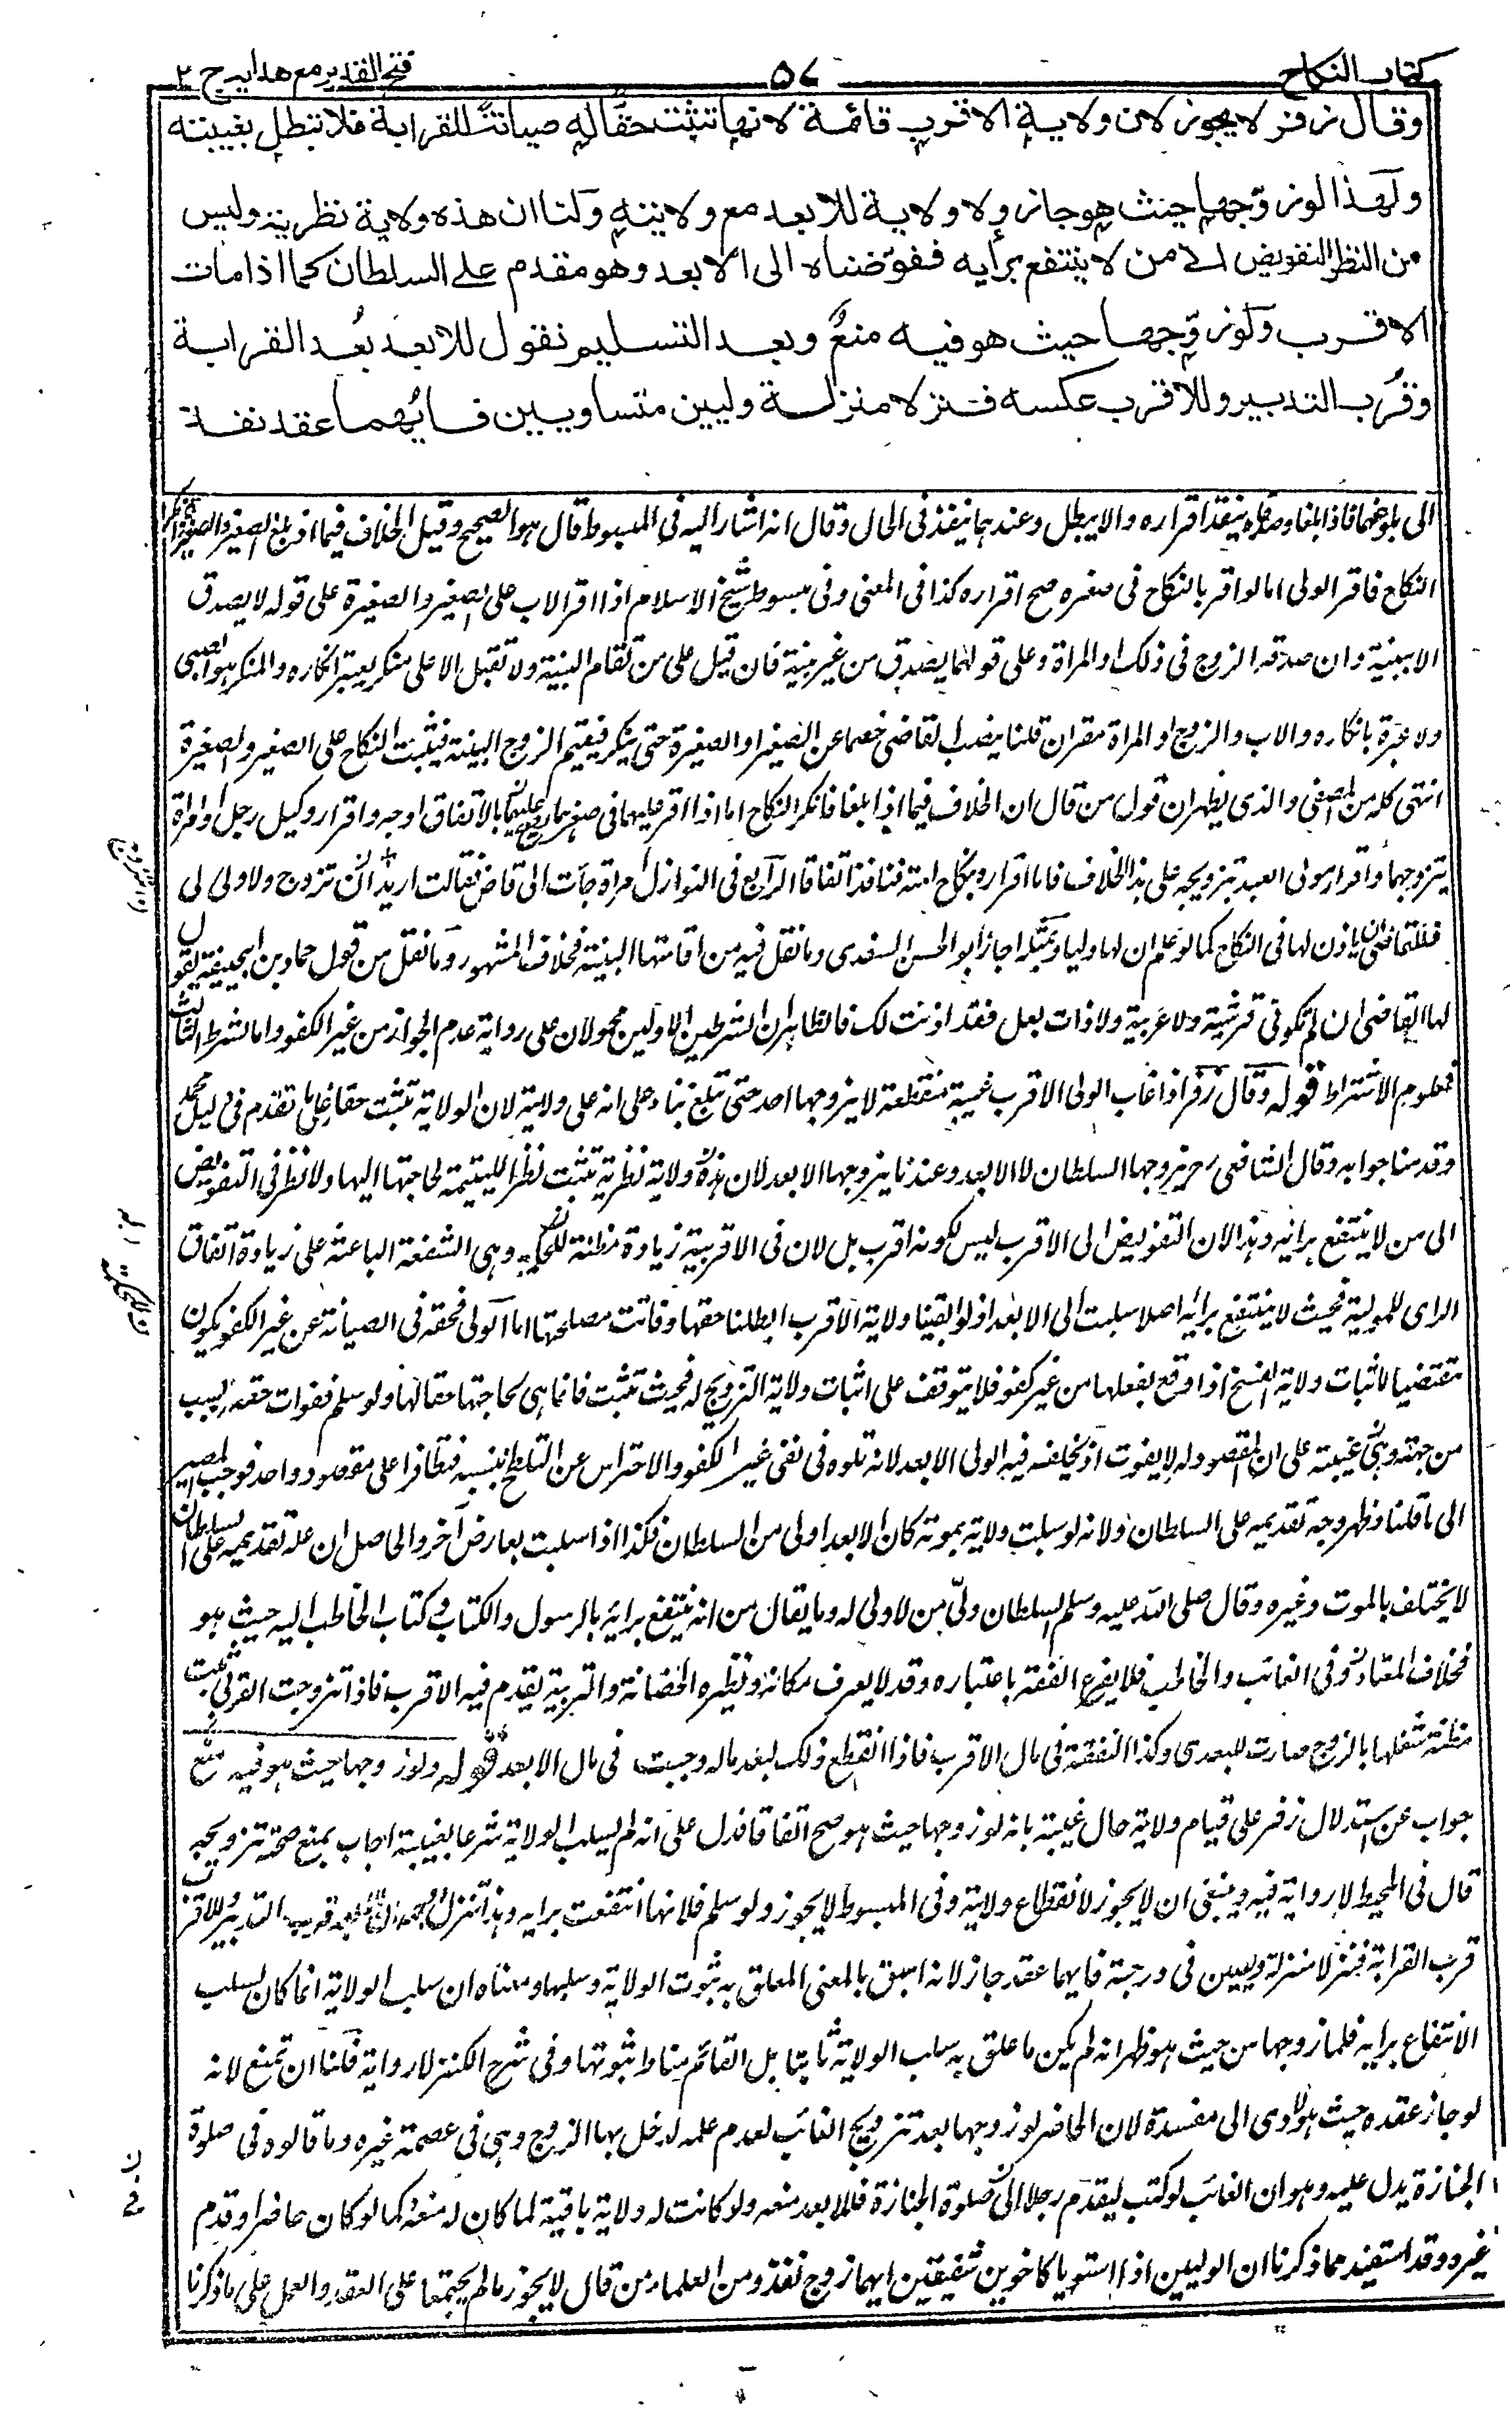 كتاب النكاح
٥٧
فتح القدير مع هدايه ج ٢
وقال زفر لا يجوز لان ولاية الاقرب قائمة لانها تثبت حقا له صيانة للقرابة فلا تبطل بغيبته
ولهذا لو زوّجها حيث هو جاز ولا ولاية للابعد مع ولايته ولنا ان هذه ولاية نظرية وليس
من النظر التفويض الى من لا ينتفع برأيه ففوّضناه الى الابعد وهو مقدم على السلطان كما اذا مات
الاقرب ولو زوّجها حيث هو فيه منعٌ وبعد التسليم نقول للابعد بُعد القرابة
وقُرب التدبير وللاقرب عكسه فنزلا منزلة وليين متساويين فايُّهما عقد نفذ
الى بلوغهما فاذا بلغا وصدقاه ينفذ اقراره والا يبطل وعندهما ينفذ فى الحال وقال انه اشار اليه فى المبسوط قال هو الصحيح وقيل الخلاف فيما اذ بلغ الصغير والصغيرة
النكاح فاقر الولى اما لو اقر بالنكاح فى صغره صح اقراره كذا فى المغنى وفى مبسوط شيخ الاسلام اذا اقر الاب على الصغير والصغيرة على قوله لا يصدق
الا ببينة وان صدقه الزوج فى ذلك او المراة وعلى قولهما يصدق من غير بينة فان قيل على من تقام البينة ولا تقبل الا على منكر يعتبر انكاره والمنكر هو الصبى
ولا عبرة بانكاره والاب والزوج او المراة مقران قلنا ينصب القاضى خصما عن الصغير او الصغيرة حتى ينكر فيقيم الزوج البينة فيثبت النكاح على الصغير والصغيرة
انتهى كله من المصفى والذى يظهر ان قول من قال ان الخلاف فيما اذا بلغا فانكر النكاح اما اذا اقر عليهما فى صغرهما يصح عليهما بالاتفاق اوجه واقرار وكيل رجل او امراة
بتزوجهما واقرار مولى العبد بتزويجه على هذا الخلاف فاما اقراره بنكاح امته فنافذ اتفاقا الرابع فى النوازل امراة جاءت الى قاض فقالت اريد ان تزوج ولا ولى لى
فللقاضى ان ياذن لها فى النكاح كما لو علم ان لها وليا وبمثله اجاز ابو الحسن السغدى وما نقل فيه من اقامتها البينة فخلاف المشهور وما نقل من قول حماد بن ابيحنيفة يقول
لها القاضى ان لم تكونى قرشية ولا عربية ولا ذات بعل فقد اذنت لك فالظاهر ان الشرطين الاولين محمولان على رواية عدم الجواز من غير الكفو واما الشرط الثالث
فمعلوم الاشتراط قوله وقال زفر اذا غاب الولى الاقرب غيبة منقطعة لا يزوجها احد حتى تبلغ بناء على انه على ولايته لان الولاية تثبت حقا على ما تقدم فى دليل محمد
وقدمنا جوابه وقال الشافعى رح يزوجها السلطان لا الابعد وعندنا يزوجها الابعد لان هذه ولاية نظرية تثبت نظرا لليتيمة لحاجتها اليها ولا نظر فى التفويض
الى من لا ينتفع برايه وهذا لان التفويض الى الاقرب ليس لكونه اقرب بل لان فى الاقربية زيادة مظنة للحكمة وهى الشفقة الباعثة على زيادة اتقان
الراى للمولية فحيث لا ينتفع برايه اصلا سلبت الى الابعد اذ لو ابقينا ولاية الاقرب ابطلنا حقها وفاتت مصلحتها اما الولى فحقه فى الصيانة عن غير الكفو يكون
مقتضيا لاثبات ولاية الفسخ اذا وقع بفعلها من غير كفو فلا يتوقف على اثبات ولاية التزويج له فحيث تثبت فانما هى لحاجتها حقا لها ولو سلم ففوات حقه بسبب
من جهته وهى غيبته على ان المقصود له لا يفوت اذ يخلفه فيه الولى الابعد لانه تلوه فى نفى غير الكفو والاحتراس عن التلطخ بنسبه فتظافرا على مقصود واحد فوجب المصير
الى ما قلنا وظهر وجه تقديمه على السلطان ولانه لو سلبت ولايته بموته كان الابعد اولى من السلطان فكذا اذا سلبت بعارض آخر والحاصل ان علة تقديمه على السلطان
لا يختلف بالموت وغيره وقال صلى الله عليه وسلم السلطان ولىّ من لا ولى له وما يقال من انه ينتفع برايه بالرسول والكتاب وكتاب الخاطب اليه حيث هو
فخلاف المعتاد فى الغائب والخاطب فلا يفرع الفقه باعتباره وقد لا يعرف مكانه ونظيره الحضانة والتربية يقدم فيه الاقرب فاذا تزوجت القربى ثبت
مظنة شغلها بالزوج صارت للبعدى وكذا النفقة فى مال الاقرب فاذا انقطع ذلك لبعد ماله وجبت فى مال الابعد قوله ولو زوجها حيث هو فيه منع
جواب عن استدلال زفر على قيام ولايته حال غيبته بانه لو زوجها حيث هو صح اتفاقا فدل على انه لم يسلب الولاية شرعا بغيبته اجاب بمنع صحة تزويجه
قال فى المحيط لا رواية فيه وينبغى ان لا يجوز لانقطاع ولايته وفى المبسوط لا يجوز ولو سلم فلانها انتفعت برايه وهذا تنزل قرب التدبير وللاقرب
قرب القرابة فنزلا منزلة وليين فى درجة فايهما عقد جاز لانه اسبق بالمعنى المعلق به ثبوت الولاية وسلبها ومعناه ان سلب الولاية انما كان لسلب
الانتفاع برايه فلما زوجها من حيث هو ظهر انه لم يكن ما علق به سلب الولاية ثابتا بل القائم مناط ثبوتها وفى شرح الكنز لا رواية فلنا ان نمنع لانه
لو جاز عقده حيث هو لادى الى مفسدة لان الحاضر لو زوجها بعد تزويج الغائب لعدم علمه لدخل بها الزوج وهى فى عصمة غيره وما قالوه فى صلوة
الجنازة يدل عليه وهو ان الغائب لو كتب ليقدم رجلا الى صلوة الجنازة فللابعد منعه ولو كانت له ولاية باقية لما كان له منعه كما لو كان حاضرا وقدم
غيره وقد استفيد مما ذكرنا ان الوليين اذا استويا كاخوين شقيقين ايهما زوج نفذ ومن العلماء من قال لا يجوز ما لم يجتمعا على العقد والعمل على ما ذكرنا